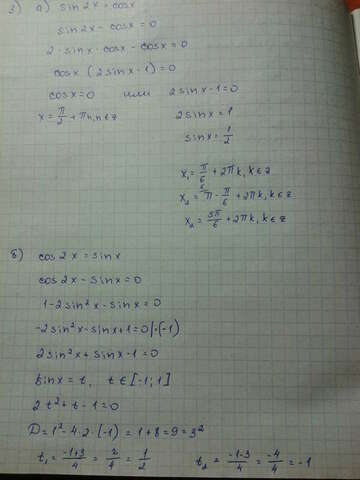 3) а) sin2x = cosx
sin2x - cosx = 0
2·sinx·cosx - cosx = 0
cosx (2sinx-1) = 0
cosx = 0 или 2sinx-1=0
x = π/2 + πn, n∈z 2sinx=1
sinx = 1/2
x₁ = π/6 + 2πk, k∈z
x₂ = π - π/6 + 2πk, k∈z
x₂ = 5π/6 + 2πk, k∈z
б) cos2x = sinx
cos2x - sinx = 0
1-2sin²x - sinx = 0
-2sin²x - sinx + 1 = 0 |·(-1)
2sin²x + sinx - 1 = 0
sinx = t, t∈[-1;1]
2t² + t - 1 = 0
D = 1² - 4·2·(-1) = 1+8 = 9 = 3²
t₁ = (-1+3)/4 = 2/4 = 1/2 t₂ = (-1-3)/4 = -4/4 = -1